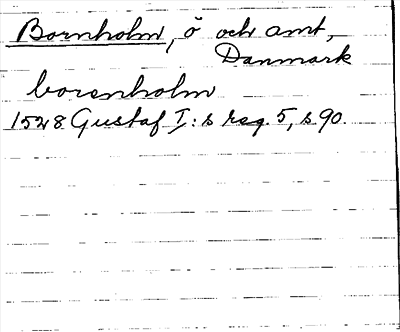 Bornholm, ö och amt,
Danmark
borenholm
1528 Gustaf I:s reg. 5, s 90.